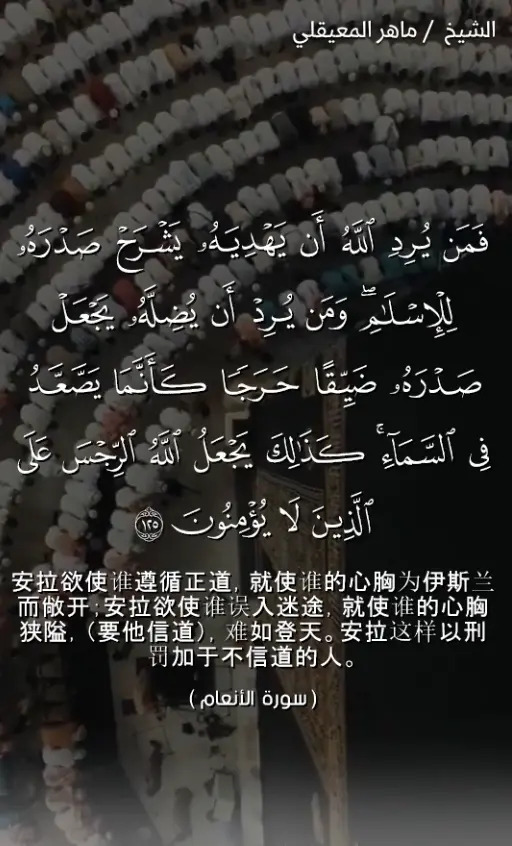 الشيخ / ماهر المعيقلي
فَمَن يُرِدِ ٱللَّهُ أَن يَهْدِيَهُۥ يَشْرَحْ صَدْرَهُۥ
لِلْإِسْلَٰمِ ۖ وَمَن يُرِدْ أَن يُضِلَّهُۥ يَجْعَلْ
صَدْرَهُۥ ضَيِّقًا حَرَجًا كَأَنَّمَا يَصَّعَّدُ
فِى ٱلسَّمَآءِ ۚ كَذَٰلِكَ يَجْعَلُ ٱللَّهُ ٱلرِّجْسَ عَلَى
ٱلَّذِينَ لَا يُؤْمِنُونَ ١٢٥
安拉欲使谁遵循正道, 就使谁的心胸为伊斯兰
而敞开;安拉欲使谁误入迷途, 就使谁的心胸
狭隘,（要他信道）, 难如登天。安拉这样以刑
罚加于不信道的人。
( سورة الأنعام )